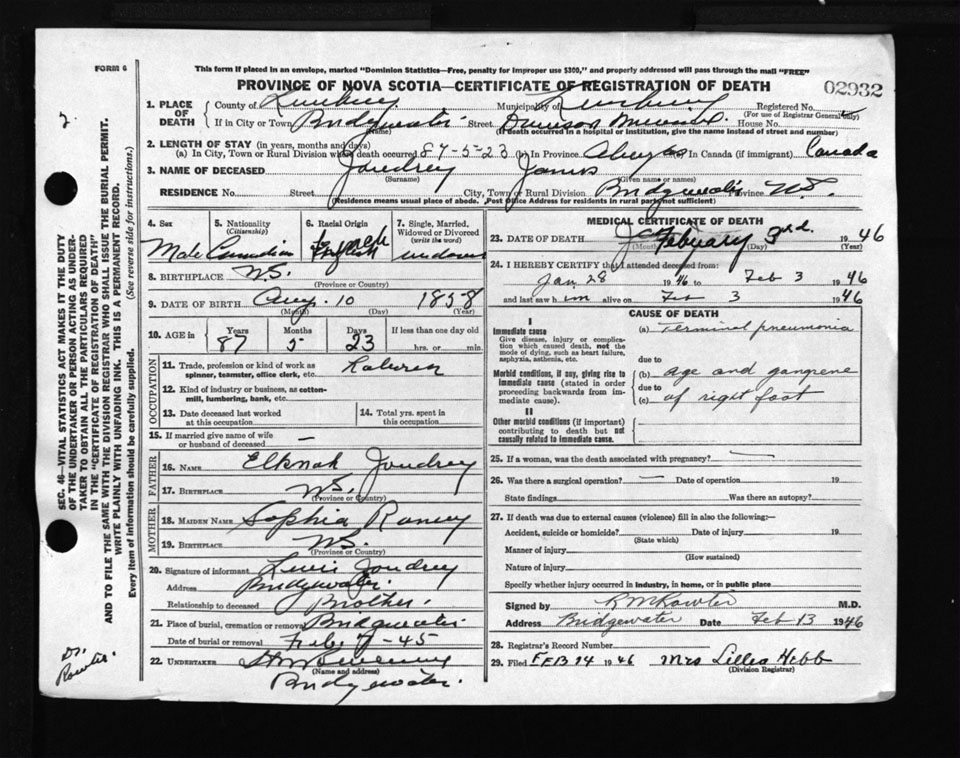 FORM 6
This form if placed in an envelope, marked "Dominion Statistics—Free, penalty for improper use $300," and properly addressed will pass through the mail "FREE"
PROVINCE OF NOVA SCOTIA—CERTIFICATE OF REGISTRATION OF DEATH
02932
1. PLACE OF DEATH County of Lunenburg Municipality of Lunenburg Registered No.
(For use of Registrar General only)
If in City or Town Bridgewater Street House No.
(Name) (If death occurred in a hospital or institution, give the name instead of street and number)
2. LENGTH OF STAY (in years, months and days)
(a) In City, Town or Rural Division where death occurred 87-5-23 (b) In Province Always In Canada (if immigrant) Canada
3. NAME OF DECEASED Joudrey James
(Surname) (Given name or names)
RESIDENCE No. Street City, Town or Rural Division Bridgewater Province N.S.
(Residence means usual place of abode. Post Office Address for residents in rural parts not sufficient)
4. Sex 5. Nationality (Citizenship) 6. Racial Origin 7. Single, Married, Widowed or Divorced (write the word)
Male Canadian English widower
8. BIRTHPLACE N.S.
(Province or Country)
9. DATE OF BIRTH Aug. 10 1858
(Month) (Day) (Year)
10. AGE in Years Months Days If less than one day old
87 5 23 hrs. or min.
OCCUPATION
11. Trade, profession or kind of work as spinner, teamster, office clerk, etc.
12. Kind of industry or business, as cotton-mill, lumbering, bank, etc.
13. Date deceased last worked at this occupation
14. Total yrs. spent in this occupation
15. If married give name of wife or husband of deceased —
FATHER
16. NAME Elknah Joudrey
17. BIRTHPLACE N.S.
(Province or Country)
MOTHER
18. MAIDEN NAME Sophia Ramey
19. BIRTHPLACE N.S.
(Province or Country)
20. Signature of informant Lewis Joudrey
Address Bridgewater.
Relationship to deceased Brother.
21. Place of burial, cremation or removal Bridgewater
Date of burial or removal Feb 7-45
22. UNDERTAKER
(Name and address)
Bridgewater.
MEDICAL CERTIFICATE OF DEATH
23. DATE OF DEATH February 3rd. 1946
(Month) (Day) (Year)
24. I HEREBY CERTIFY that I attended deceased from:
Jan 28 1946 to Feb 3 1946
and last saw him alive on Feb 3 1946
CAUSE OF DEATH
I
Immediate cause
Give disease, injury or complication which caused death, not the mode of dying, such as heart failure, asphyxia, asthenia, etc.
(a) Terminal pneumonia
due to
Morbid conditions, if any, giving rise to immediate cause (stated in order proceeding backwards from immediate cause).
(b) age and gangrene
due to
(c) of right foot
II
Other morbid conditions (if important) contributing to death but not causally related to immediate cause.
25. If a woman, was the death associated with pregnancy? —
26. Was there a surgical operation? — Date of operation 19
State findings Was there an autopsy?
27. If death was due to external causes (violence) fill in also the following:—
Accident, suicide or homicide? Date of injury 19
(State which)
Manner of injury
(How sustained)
Nature of injury
Specify whether injury occurred in industry, in home, or in public place
Signed by M.D.
Address Bridgewater Date Feb 13 1946
28. Registrar's Record Number
29. Filed FEB 14 1946 Mrs Lillia Hebb
(Division Registrar)
SEC. 46—VITAL STATISTICS ACT MAKES IT THE DUTY
OF THE UNDERTAKER OR PERSON ACTING AS UNDER-
TAKER TO OBTAIN ALL THE PARTICULARS REQUIRED
IN THE "CERTIFICATE OF REGISTRATION OF DEATH"
AND TO FILE THE SAME WITH THE DIVISION REGISTRAR WHO SHALL ISSUE THE BURIAL PERMIT.
WRITE PLAINLY WITH UNFADING INK. THIS IS A PERMANENT RECORD.
Every item of information should be carefully supplied. (See reverse side for instructions.)
2
Dr.